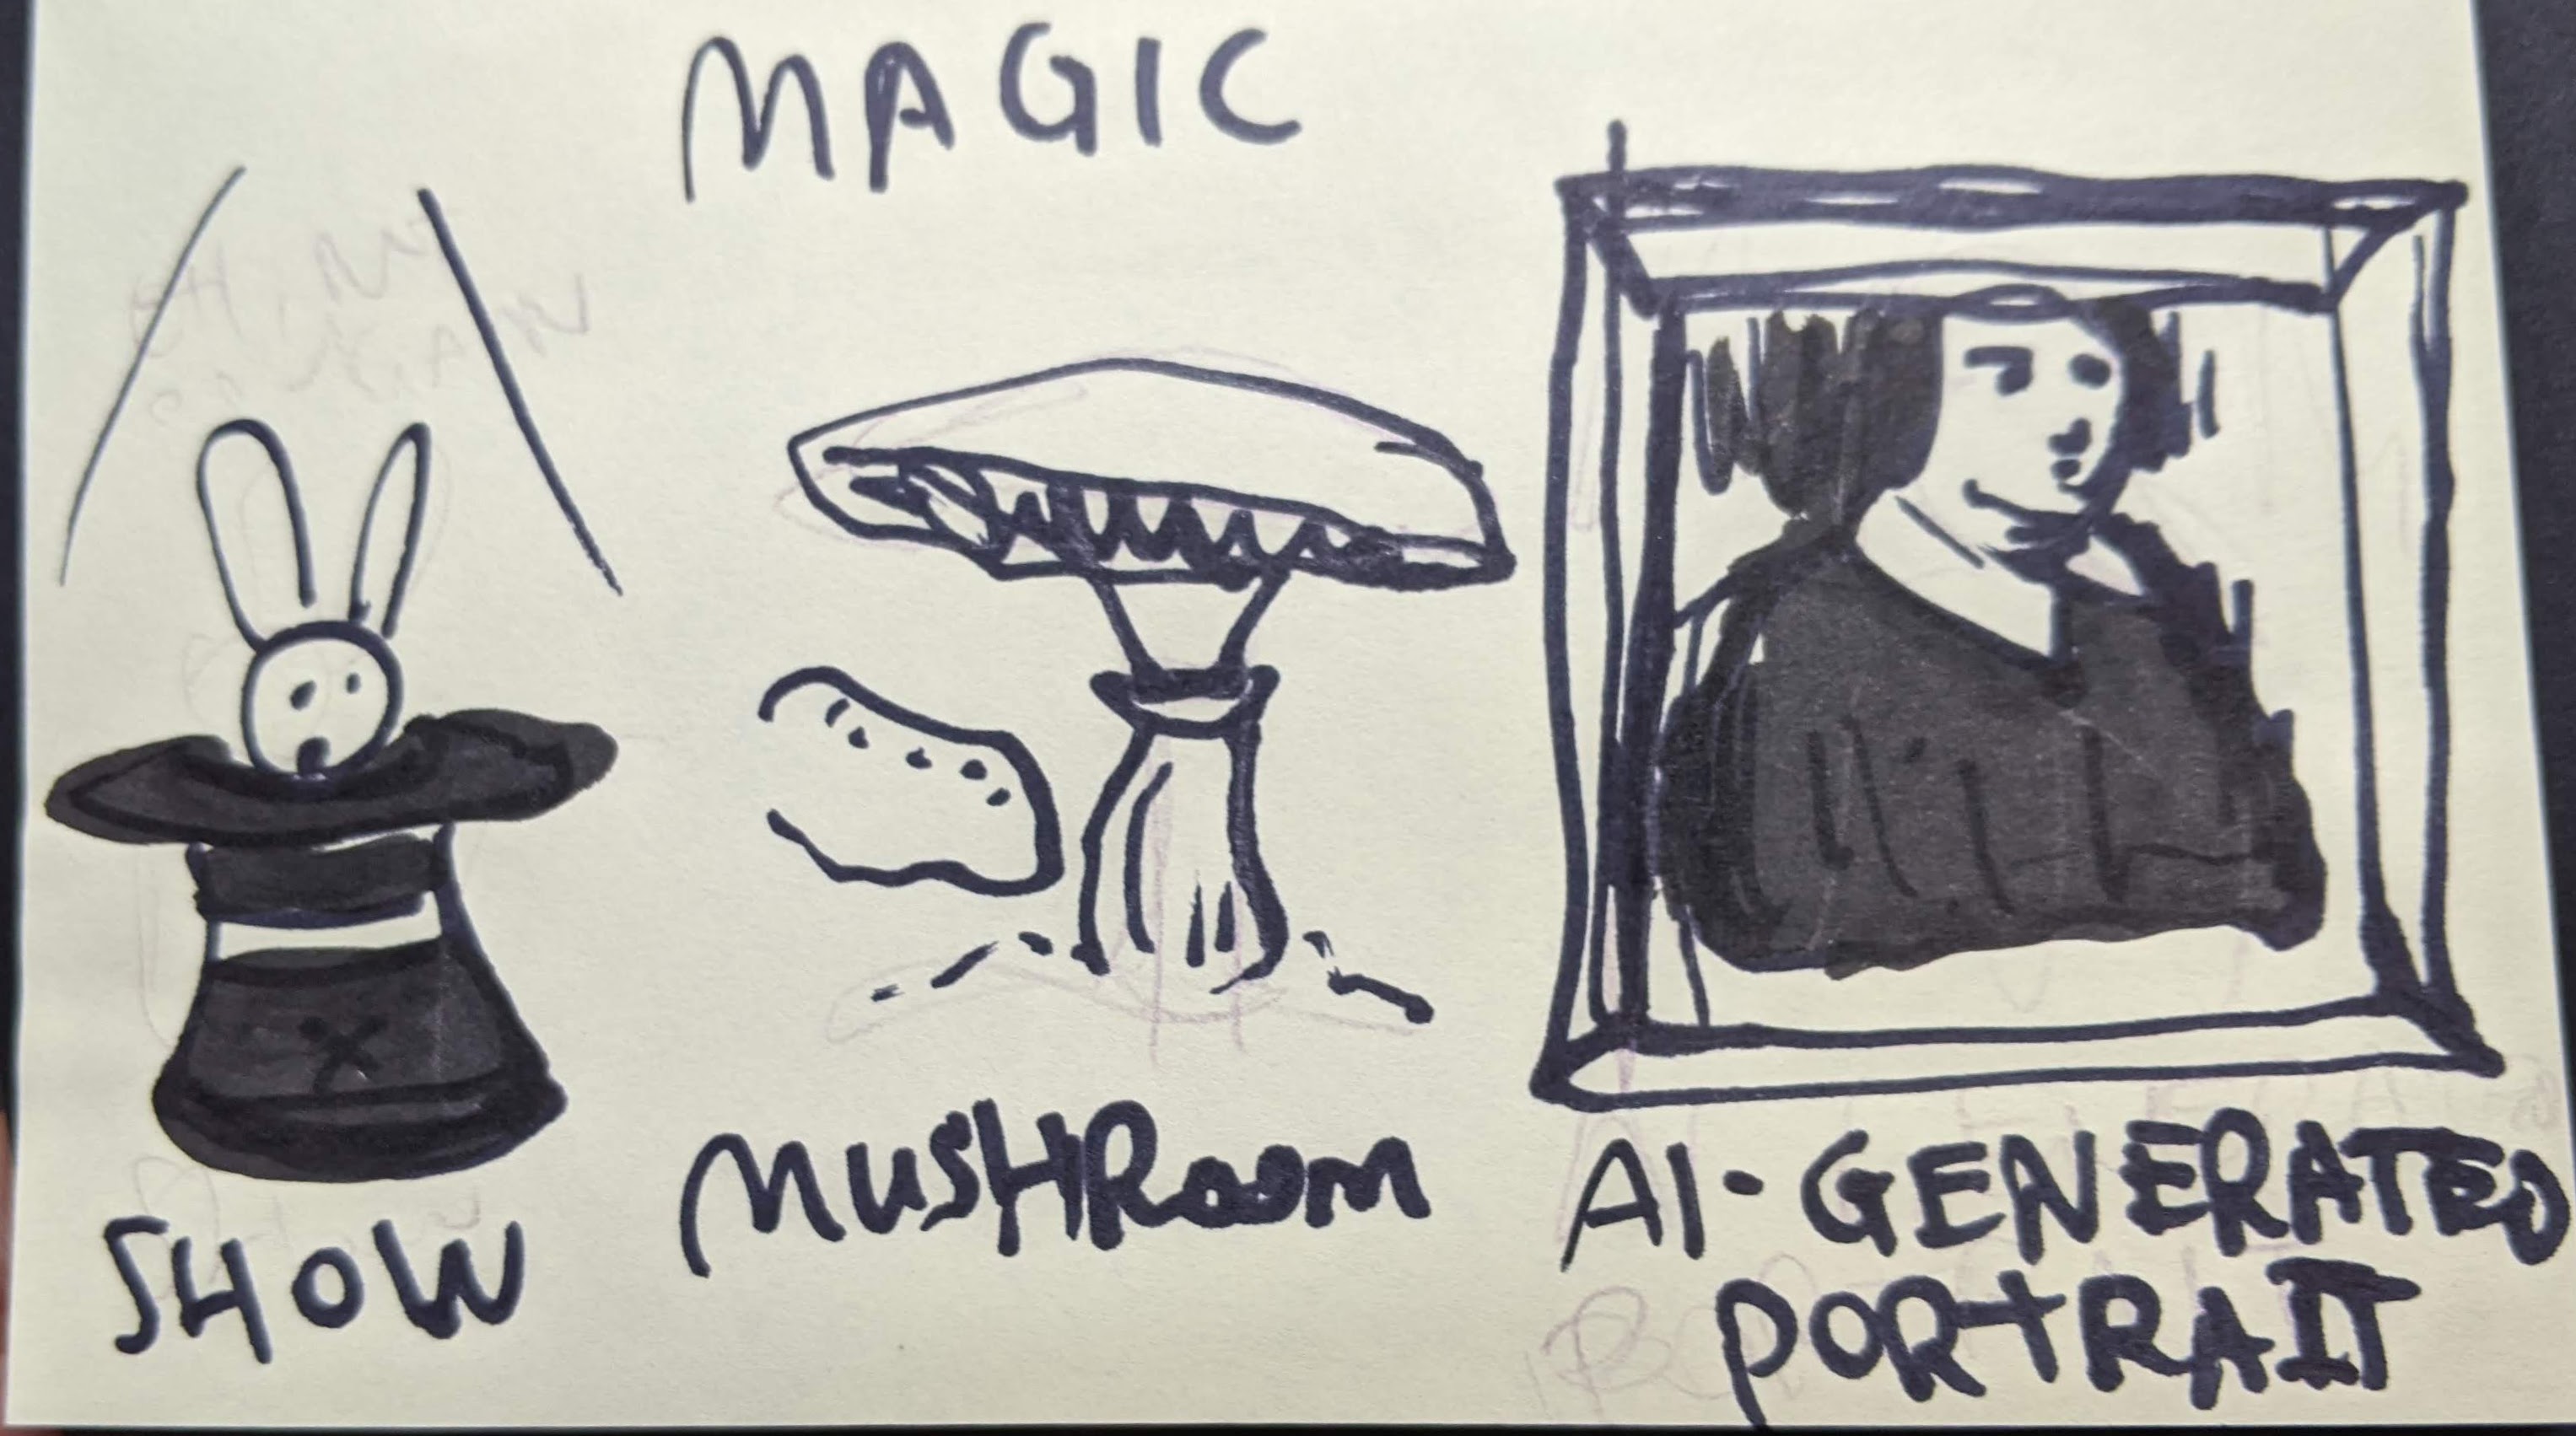 MAGIC
SHOW
MUSHROOM
AI-GENERATED
PORTRAIT